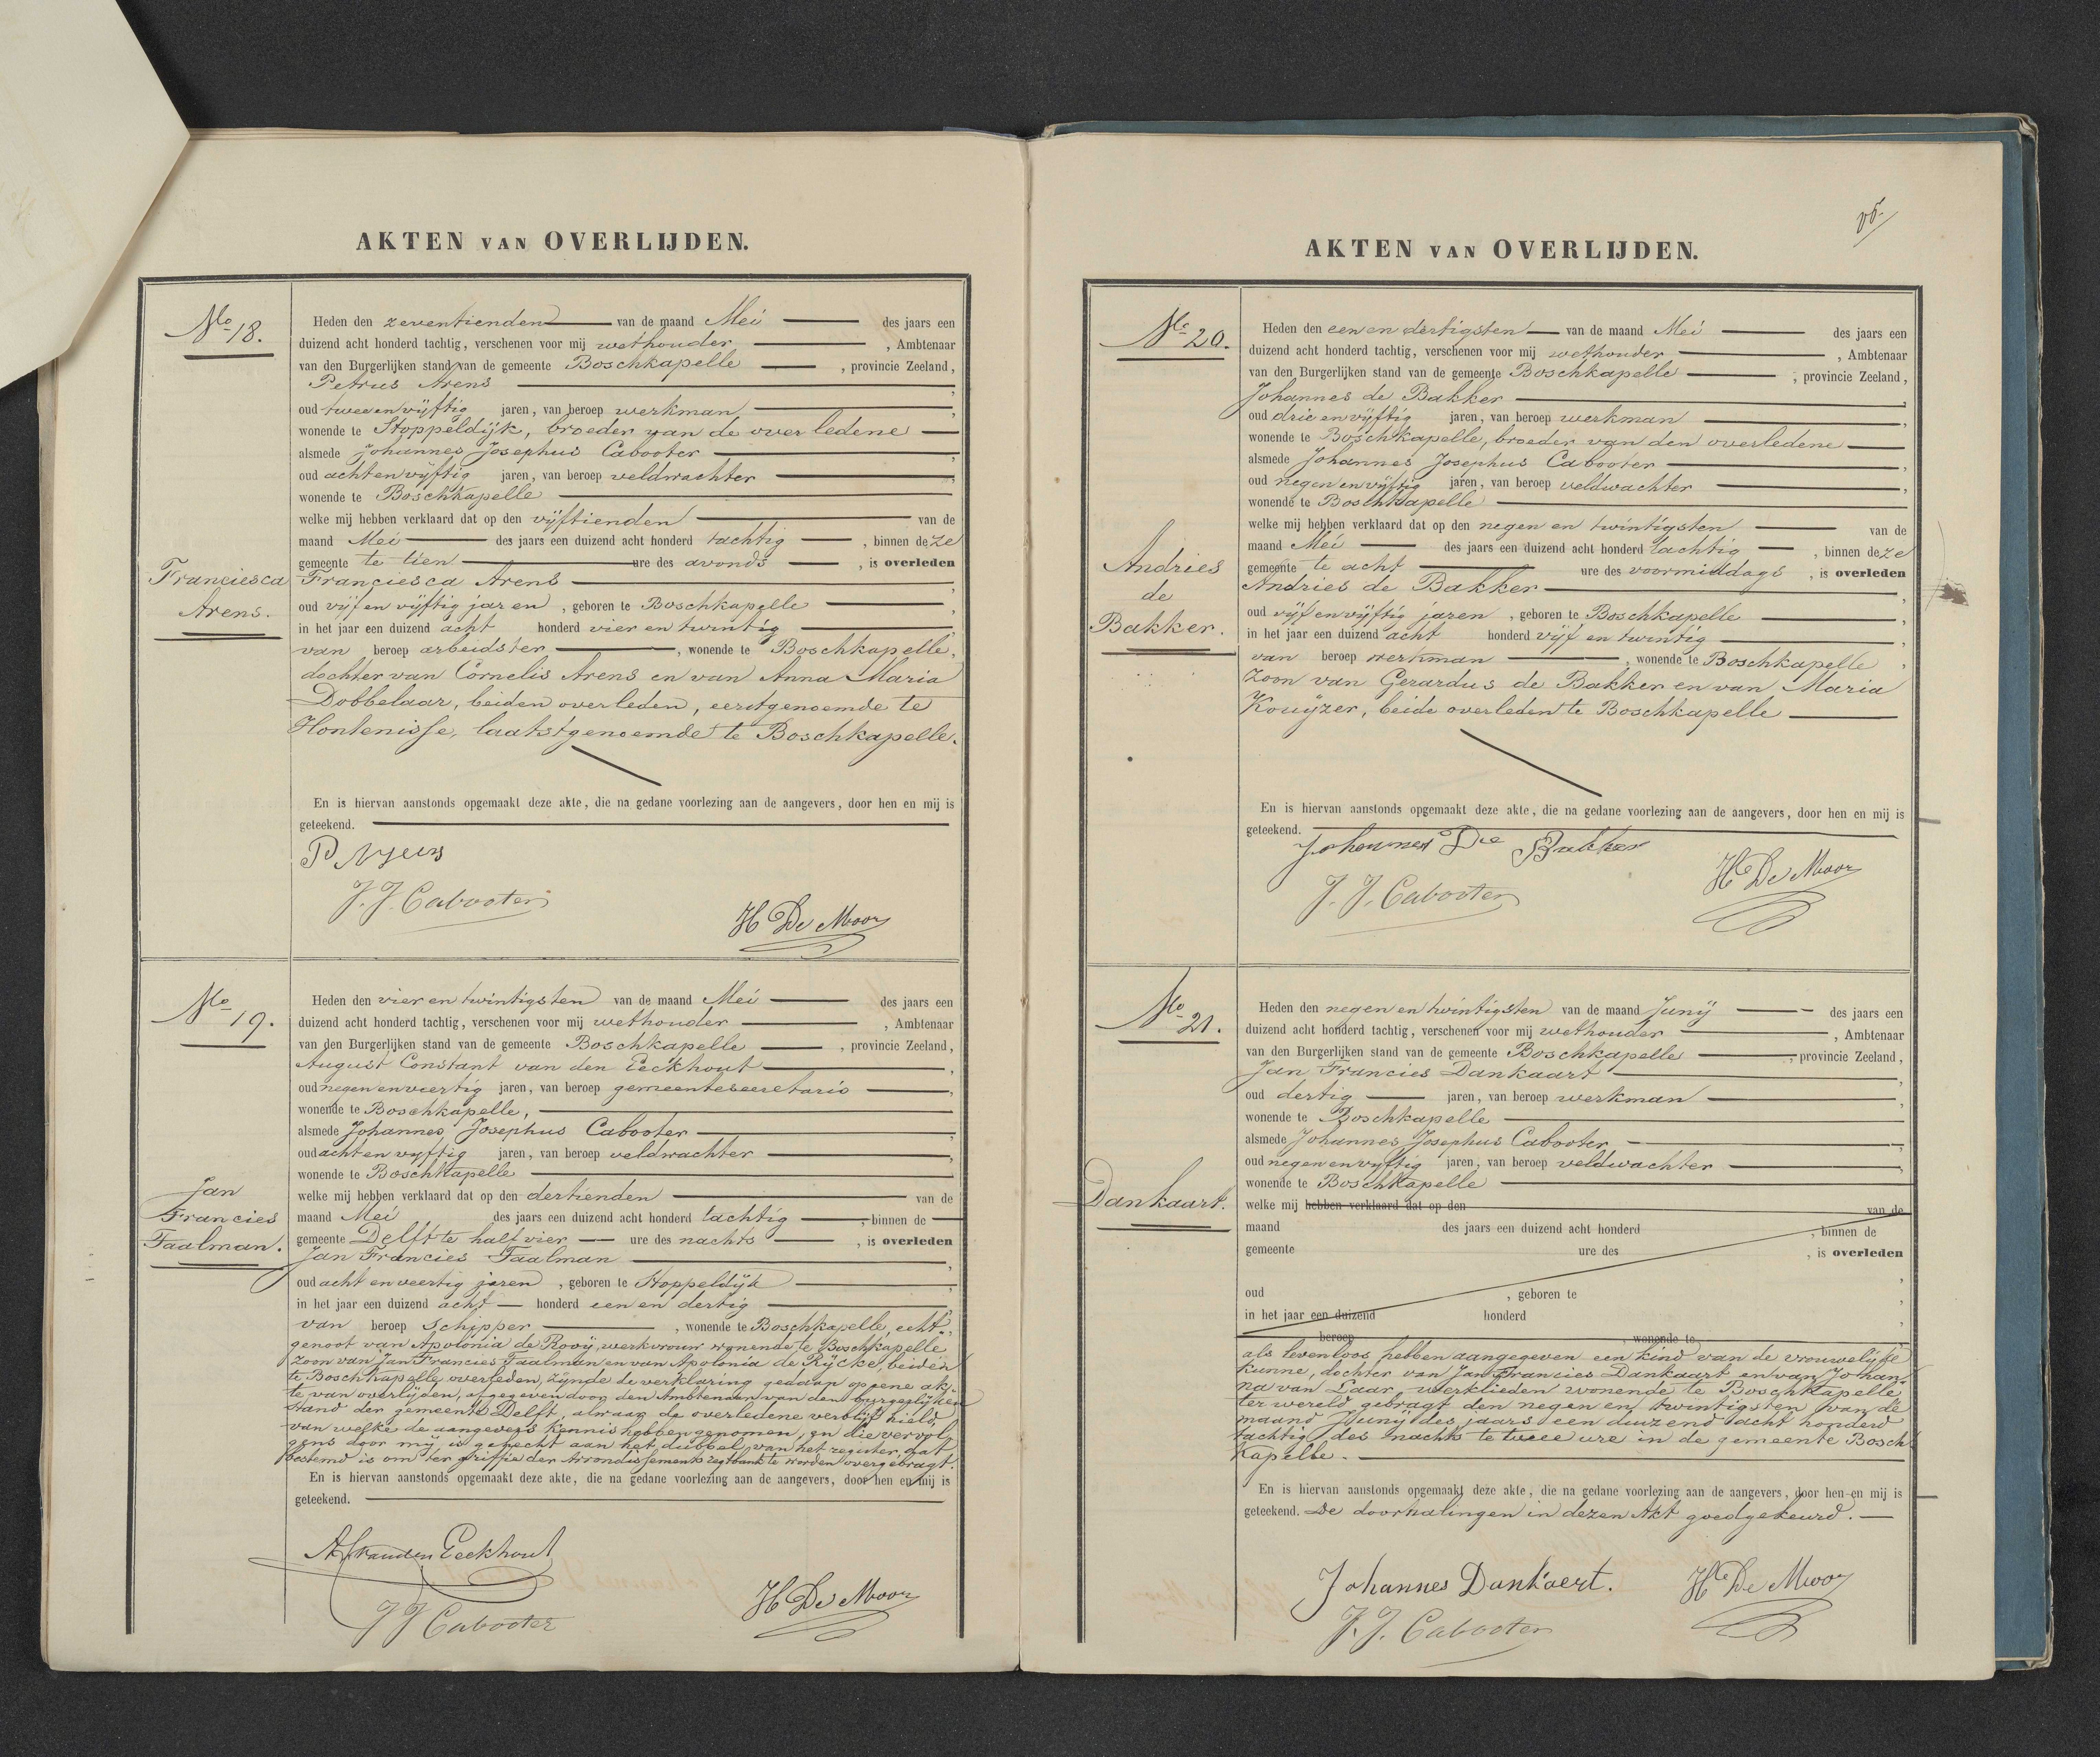 AKTEN VAN OVERLIJDEN.
No 18.
Franciesca
Arens.
Heden den zeventienden van de maand Mei des jaars een
duizend acht honderd tachtig, verschenen voor mij wethouder, Ambtenaar
van den Burgerlijken stand van de gemeente Boschkapelle, provincie Zeeland,
Petrus Arens,
oud twee en vijftig jaren, van beroep werkman,
wonende te Stoppeldijk, broeder van de overledene
alsmede Johannes Josephus Cabooter,
oud acht en vijftig jaren, van beroep veldwachter,
wonende te Boschkapelle
welke mij hebben verklaard dat op den vijftienden van de
maand Mei des jaars een duizend acht honderd tachtig, binnen deze
gemeente te tien ure des avonds, is overleden
Franciesca Arens,
oud vijf en vijftig jaren, geboren te Boschkapelle,
in het jaar een duizend acht honderd vier en twintig,
van beroep arbeidster, wonende te Boschkapelle,
dochter van Cornelis Arens en van Anna Maria
Dobbelaar, beiden overleden, eerstgenoemde te
Hontenisse, laatstgenoemde te Boschkapelle.
En is hiervan aanstonds opgemaakt deze akte, die na gedane voorlezing aan de aangevers, door hen en mij is
geteekend.
J. J. Cabooter
H De Moor
No 19.
Jan
Francies
Taalman.
Heden den vier en twintigsten van de maand Mei des jaars een
duizend acht honderd tachtig, verschenen voor mij wethouder, Ambtenaar
van den Burgerlijken stand van de gemeente Boschkapelle, provincie Zeeland,
August Constant van den Eeckhout,
oud negen en veertig jaren, van beroep gemeentesecretaris,
wonende te Boschkapelle,
alsmede Johannes Josephus Cabooter,
oud acht en vyftig jaren, van beroep veldwachter,
wonende te Boschkapelle
welke mij hebben verklaard dat op den dertienden van de
maand Mei des jaars een duizend acht honderd tachtig, binnen de
gemeente Delft te half vier ure des nachts, is overleden
Jan Francies Taalman,
oud acht en veertig jaren, geboren te Stoppeldijk,
in het jaar een duizend acht honderd een en dertig,
van beroep schipper, wonende te Boschkapelle, echt-
genoot van Apolonia de Rooij, werkvrouw wonende te Boschkapelle
zoon van Jan Francies Taalman en van Apolonia de Rijcke, beiden
te Boschkapelle overleden, zijnde de verklaring gedaan op eene ak-
te van overlijden, afgegeven door den Ambtenaar van den burgerlijken
stand der gemeente Delft, alwaar de overledene verblijf hield,
van welke de aangevers kennis hebben genomen, en die vervol
gens door mij is gehecht aan het dubbel van het register, dat
bestemd is om ter griffie der Arrondissements regtbank te worden overgebragt.
En is hiervan aanstonds opgemaakt deze akte, die na gedane voorlezing aan de aangevers, door hen en mij is
geteekend.
J J Cabooter
H De Moor
AKTEN VAN OVERLIJDEN.
No 20.
Andries
de
Bakker.
Heden den een en dertigsten van de maand Mei des jaars een
duizend acht honderd tachtig, verschenen voor mij wethouder, Ambtenaar
van den Burgerlijken stand van de gemeente Boschkapelle, provincie Zeeland,
Johannes de Bakker,
oud drie en vijftig jaren, van beroep werkman,
wonende te Boschkapelle, broeder van den overledene
alsmede Johannes Josephus Cabooter,
oud negen en vijftig jaren, van beroep veldwachter,
wonende te Boschkapelle
welke mij hebben verklaard dat op den negen en twintigsten van de
maand Mei des jaars een duizend acht honderd tachtig, binnen deze
gemeente te acht ure des voormiddags, is overleden
Andries de Bakker,
oud vijf en vijftig jaren, geboren te Boschkapelle,
in het jaar een duizend acht honderd vijf en twintig,
van beroep werkman, wonende te Boschkapelle,
zoon van Gerardus de Bakker en van Maria
Kouijzer, beide overleden te Boschkapelle
En is hiervan aanstonds opgemaakt deze akte, die na gedane voorlezing aan de aangevers, door hen en mij is
geteekend.
Johannes De Bakker
H De Moor
J. J. Cabooter
No 21.
Dankaart.
Heden den negen en twintigsten van de maand Junij des jaars een
duizend acht honderd tachtig, verschenen voor mij wethouder, Ambtenaar
van den Burgerlijken stand van de gemeente Boschkapelle, provincie Zeeland,
Jan Francies Dankaart,
oud dertig jaren, van beroep werkman,
wonende te Boschkapelle
alsmede Johannes Josephus Cabooter,
oud negen en vyftig jaren, van beroep veldwachter,
wonende te Boschkapelle
welke mij hebben verklaard dat op den van de
maand des jaars een duizend acht honderd, binnen de
gemeente ure des, is overleden
oud, geboren te,
in het jaar een duizend honderd,
beroep, wonende te
als levenloos hebben aangegeven een kind van de vrouwelijke
kunne, dochter van Jan Francies Dankaart en van Johan-
na van Laar, werklieden wonende te Boschkapelle
ter wereld gebragt den negen en twintigsten van de
maand Junij des jaars een duizend acht honderd
tachtig des nachts te twee ure in de gemeente Bosch
kapelle.
En is hiervan aanstonds opgemaakt deze akte, die na gedane voorlezing aan de aangevers, door hen en mij is
geteekend. De doorhalingen in dezen Akt goedgekeurd.
Johannes Dankaert.
H De Moor
J. J. Cabooter